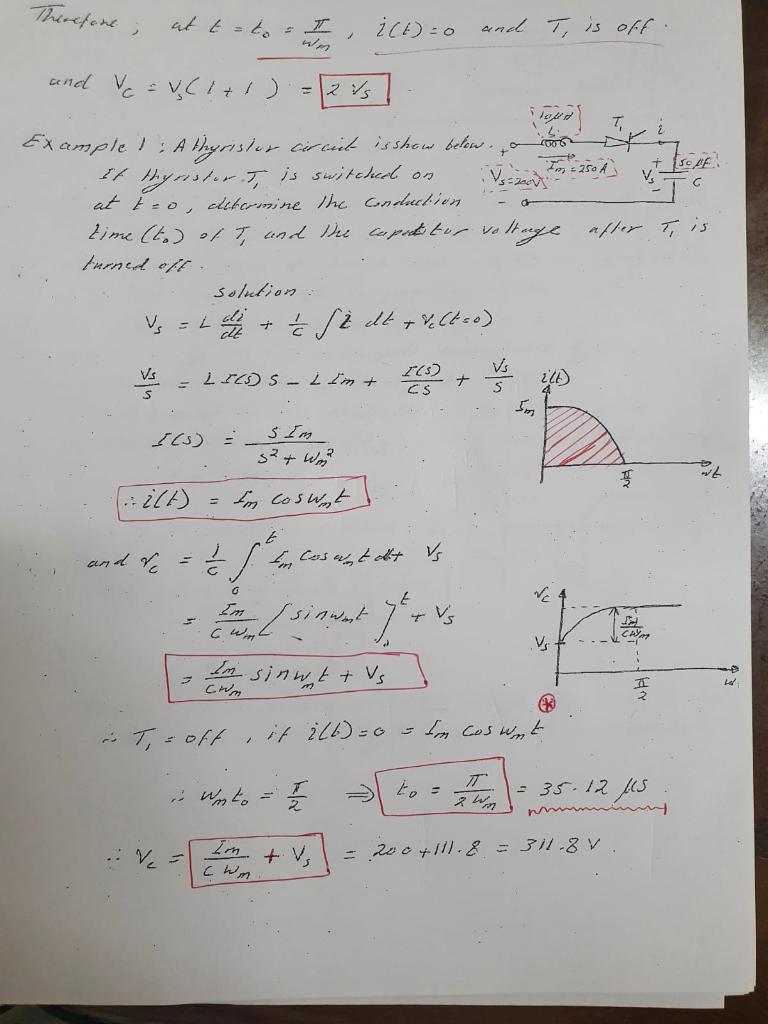 Therefore; at t = t₀ = π/Wm, i(t)=0 and T₁ is off.
and Vc = Vs(1+1) = 2 Vs
Example 1: A thyristor circuit is show below.
If thyristor T₁ is switched on
at t=0, determine the conduction
time (t₀) of T₁ and the capacitor voltage after T₁ is
turned off.
10μH
L
T₁
i
+
Im = 250A
Vs=200V
-
+
Vs
-
50μF
C
solution:
Vs = L di/dt + 1/C ∫ i dt + Vc(t=0)
Vs/S = L I(S) S - L Im + I(S)/CS + Vs/S
I(S) = S Im / S² + Wm²
∴ i(t) = Im cos Wm t
i(t)
Im
π/2
wt
and Vc = 1/C ∫₀ᵗ Im cos Wm t dt + Vs
= Im/C Wm [ sin Wm t ]₀ᵗ + Vs
= Im/CWm sin Wm t + Vs
Vc
Vs
Im/CWm
π/2
∴ T₁ = off, if i(t)=0 = Im cos Wm t
∴ Wm t₀ = π/2 ⇒ t₀ = π/2Wm = 35.12 μs
∴ Vc = Im/C Wm + Vs = 200+111.8 = 311.8 V.